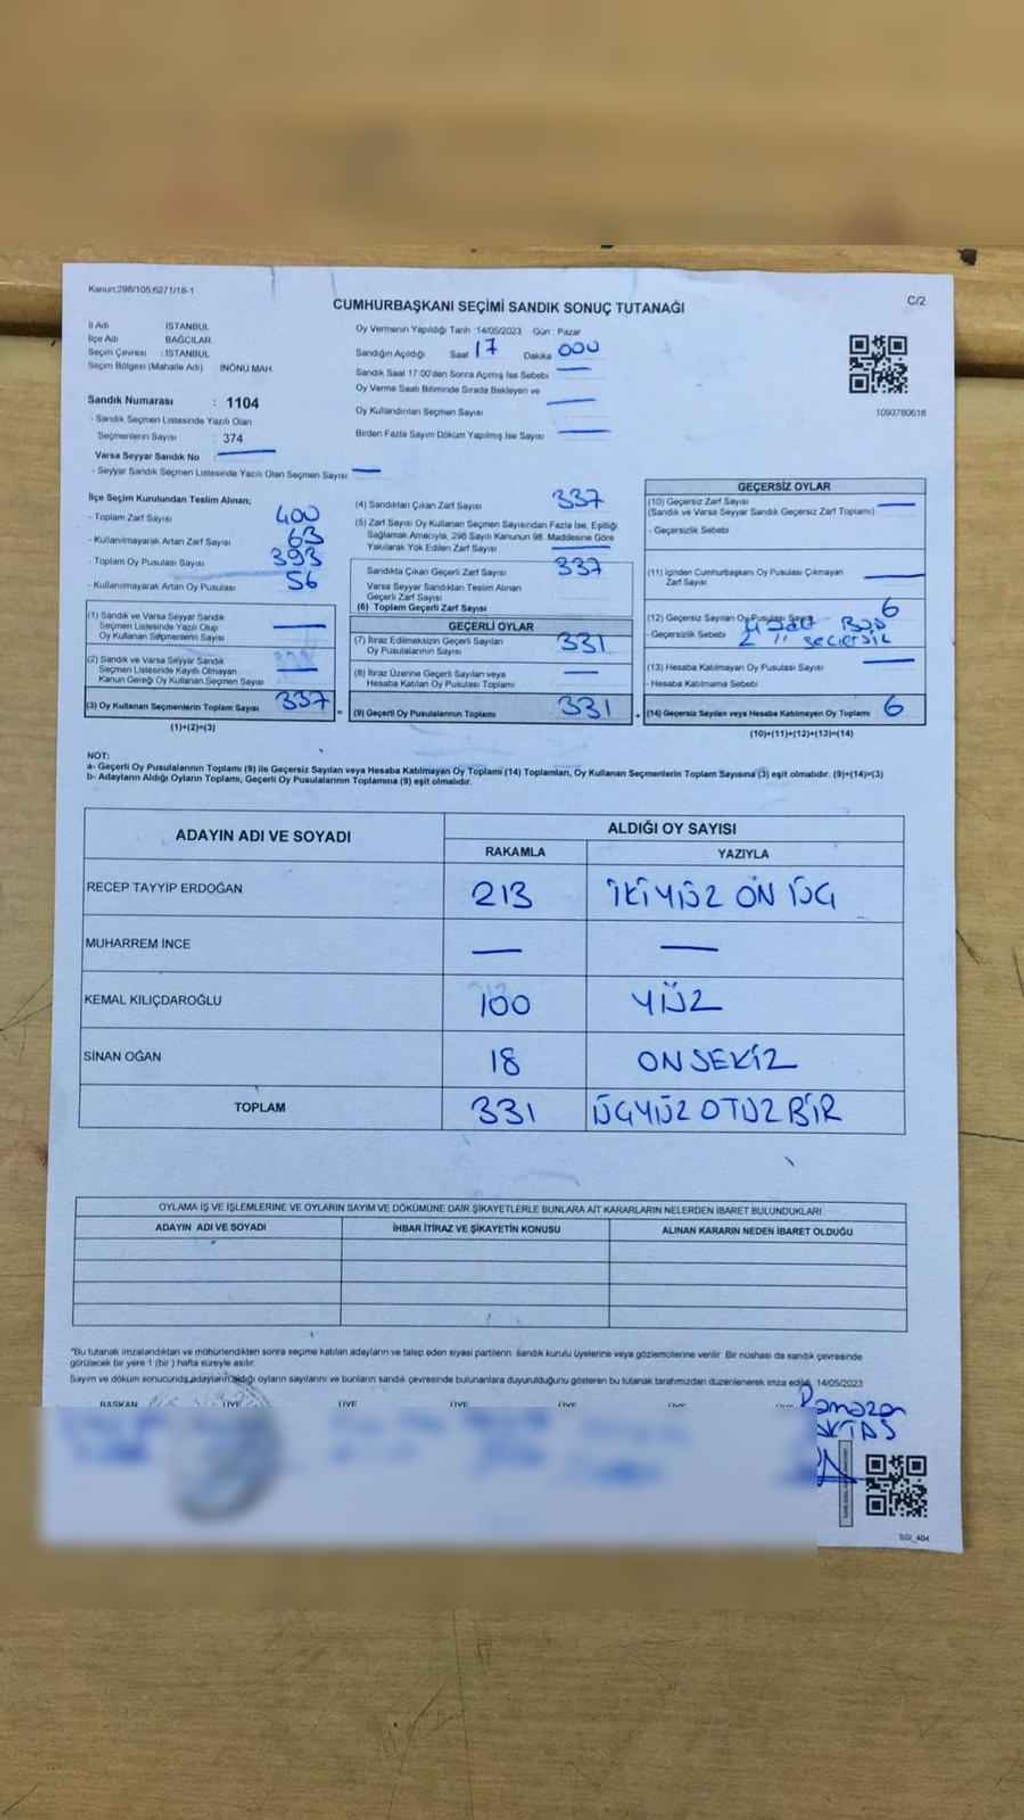 Kanun:298/105;6271/18-1
C/2
CUMHURBAŞKANI SEÇİMİ SANDIK SONUÇ TUTANAĞI
İl Adı İSTANBUL
İlçe Adı BAĞCILAR
Seçim Çevresi : İSTANBUL
Seçim Bölgesi (Mahalle Adı) İNÖNÜ MAH.
Sandık Numarası : 1104
- Sandık Seçmen Listesinde Yazılı Olan
Seçmenlerin Sayısı : 374
Varsa Seyyar Sandık No —
- Seyyar Sandık Seçmen Listesinde Yazılı Olan Seçmen Sayısı —
Oy Vermenin Yapıldığı Tarih :14/05/2023 Gün : Pazar
Sandığın Açıldığı Saat 17 Dakika 000
Sandık Saat 17:00'den Sonra Açılmış İse Sebebi —
Oy Verme Saati Bitiminde Sırada Bekleyen ve
Oy Kullandırılan Seçmen Sayısı —
Birden Fazla Sayım Döküm Yapılmış İse Sayısı —
1090780618
İlçe Seçim Kurulundan Teslim Alınan;
- Toplam Zarf Sayısı 400
- Kullanılmayarak Artan Zarf Sayısı 63
- Toplam Oy Pusulası Sayısı 393
- Kullanılmayarak Artan Oy Pusulası 56
(1) Sandık ve Varsa Seyyar Sandık
Seçmen Listesinde Yazılı Olup
Oy Kullanan Seçmenlerin Sayısı —
(2) Sandık ve Varsa Seyyar Sandık
Seçmen Listesinde Kayıtlı Olmayan
Kanun Gereği Oy Kullanan Seçmen Sayısı —
(3) Oy Kullanan Seçmenlerin Toplam Sayısı 337
(1)+(2)=(3)
(4) Sandıktan Çıkan Zarf Sayısı 337
(5) Zarf Sayısı Oy Kullanan Seçmen Sayısından Fazla İse, Eşitliği
Sağlamak Amacıyla, 298 Sayılı Kanunun 98. Maddesine Göre
Yakılarak Yok Edilen Zarf Sayısı —
Sandıkta Çıkan Geçerli Zarf Sayısı 337
Varsa Seyyar Sandıktan Teslim Alınan
Geçerli Zarf Sayısı
(6) Toplam Geçerli Zarf Sayısı
GEÇERLİ OYLAR
(7) İtiraz Edilmeksizin Geçerli Sayılan
Oy Pusulalarının Sayısı 331
(8) İtiraz Üzerine Geçerli Sayılan veya
Hesaba Katılan Oy Pusulası Toplamı —
(9) Geçerli Oy Pusulalarının Toplamı 331
GEÇERSİZ OYLAR
(10) Geçersiz Zarf Sayısı
(Sandık ve Varsa Seyyar Sandık Geçersiz Zarf Toplamı) —
- Geçersizlik Sebebi
(11) İçinden Cumhurbaşkanı Oy Pusulası Çıkmayan
Zarf Sayısı —
(12) Geçersiz Sayılan Oy Pusulası Sayısı 6
- Geçersizlik Sebebi 4 zarf Boş
2 " geçersiz
(13) Hesaba Katılmayan Oy Pusulası Sayısı —
- Hesaba Katılmama Sebebi
(14) Geçersiz Sayılan veya Hesaba Katılmayan Oy Toplamı 6
(10)+(11)+(12)+(13)=(14)
NOT:
a- Geçerli Oy Pusulalarının Toplamı (9) ile Geçersiz Sayılan veya Hesaba Katılmayan Oy Toplamı (14) Toplamları, Oy Kullanan Seçmenlerin Toplam Sayısına (3) eşit olmalıdır. (9)+(14)=(3)
b- Adayların Aldığı Oyların Toplamı, Geçerli Oy Pusulalarının Toplamına (9) eşit olmalıdır.
ADAYIN ADI VE SOYADI ALDIĞI OY SAYISI
RAKAMLA YAZIYLA
RECEP TAYYİP ERDOĞAN 213 İKİ YÜZ ON ÜÇ
MUHARREM İNCE — —
KEMAL KILIÇDAROĞLU 100 YÜZ
SİNAN OĞAN 18 ONSEKİZ
TOPLAM 331 ÜÇYÜZ OTUZ BİR
OYLAMA İŞ VE İŞLEMLERİNE VE OYLARIN SAYIM VE DÖKÜMÜNE DAİR ŞİKAYETLERLE BUNLARA AİT KARARLARIN NELERDEN İBARET BULUNDUKLARI
ADAYIN ADI VE SOYADI İHBAR İTİRAZ VE ŞİKAYETİN KONUSU ALINAN KARARIN NEDEN İBARET OLDUĞU
"Bu tutanak imzalandıktan ve mühürlendikten sonra seçime katılan adayların ve talep eden siyasi partilerin sandık kurulu üyelerine veya gözlemcilerine verilir. Bir nüshası da sandık çevresinde
görülecek bir yere 1 (bir) hafta süreyle asılır.
Sayım ve döküm sonucunda,adayların aldığı oyların sayılarını ve bunların sandık çevresinde bulunanlara duyurulduğunu gösteren bu tutanak tarafımızdan düzenlenerek imza edildi. 14/05/2023
BAŞKAN ÜYE ÜYE ÜYE ÜYE
Ramazan
AKTAŞ